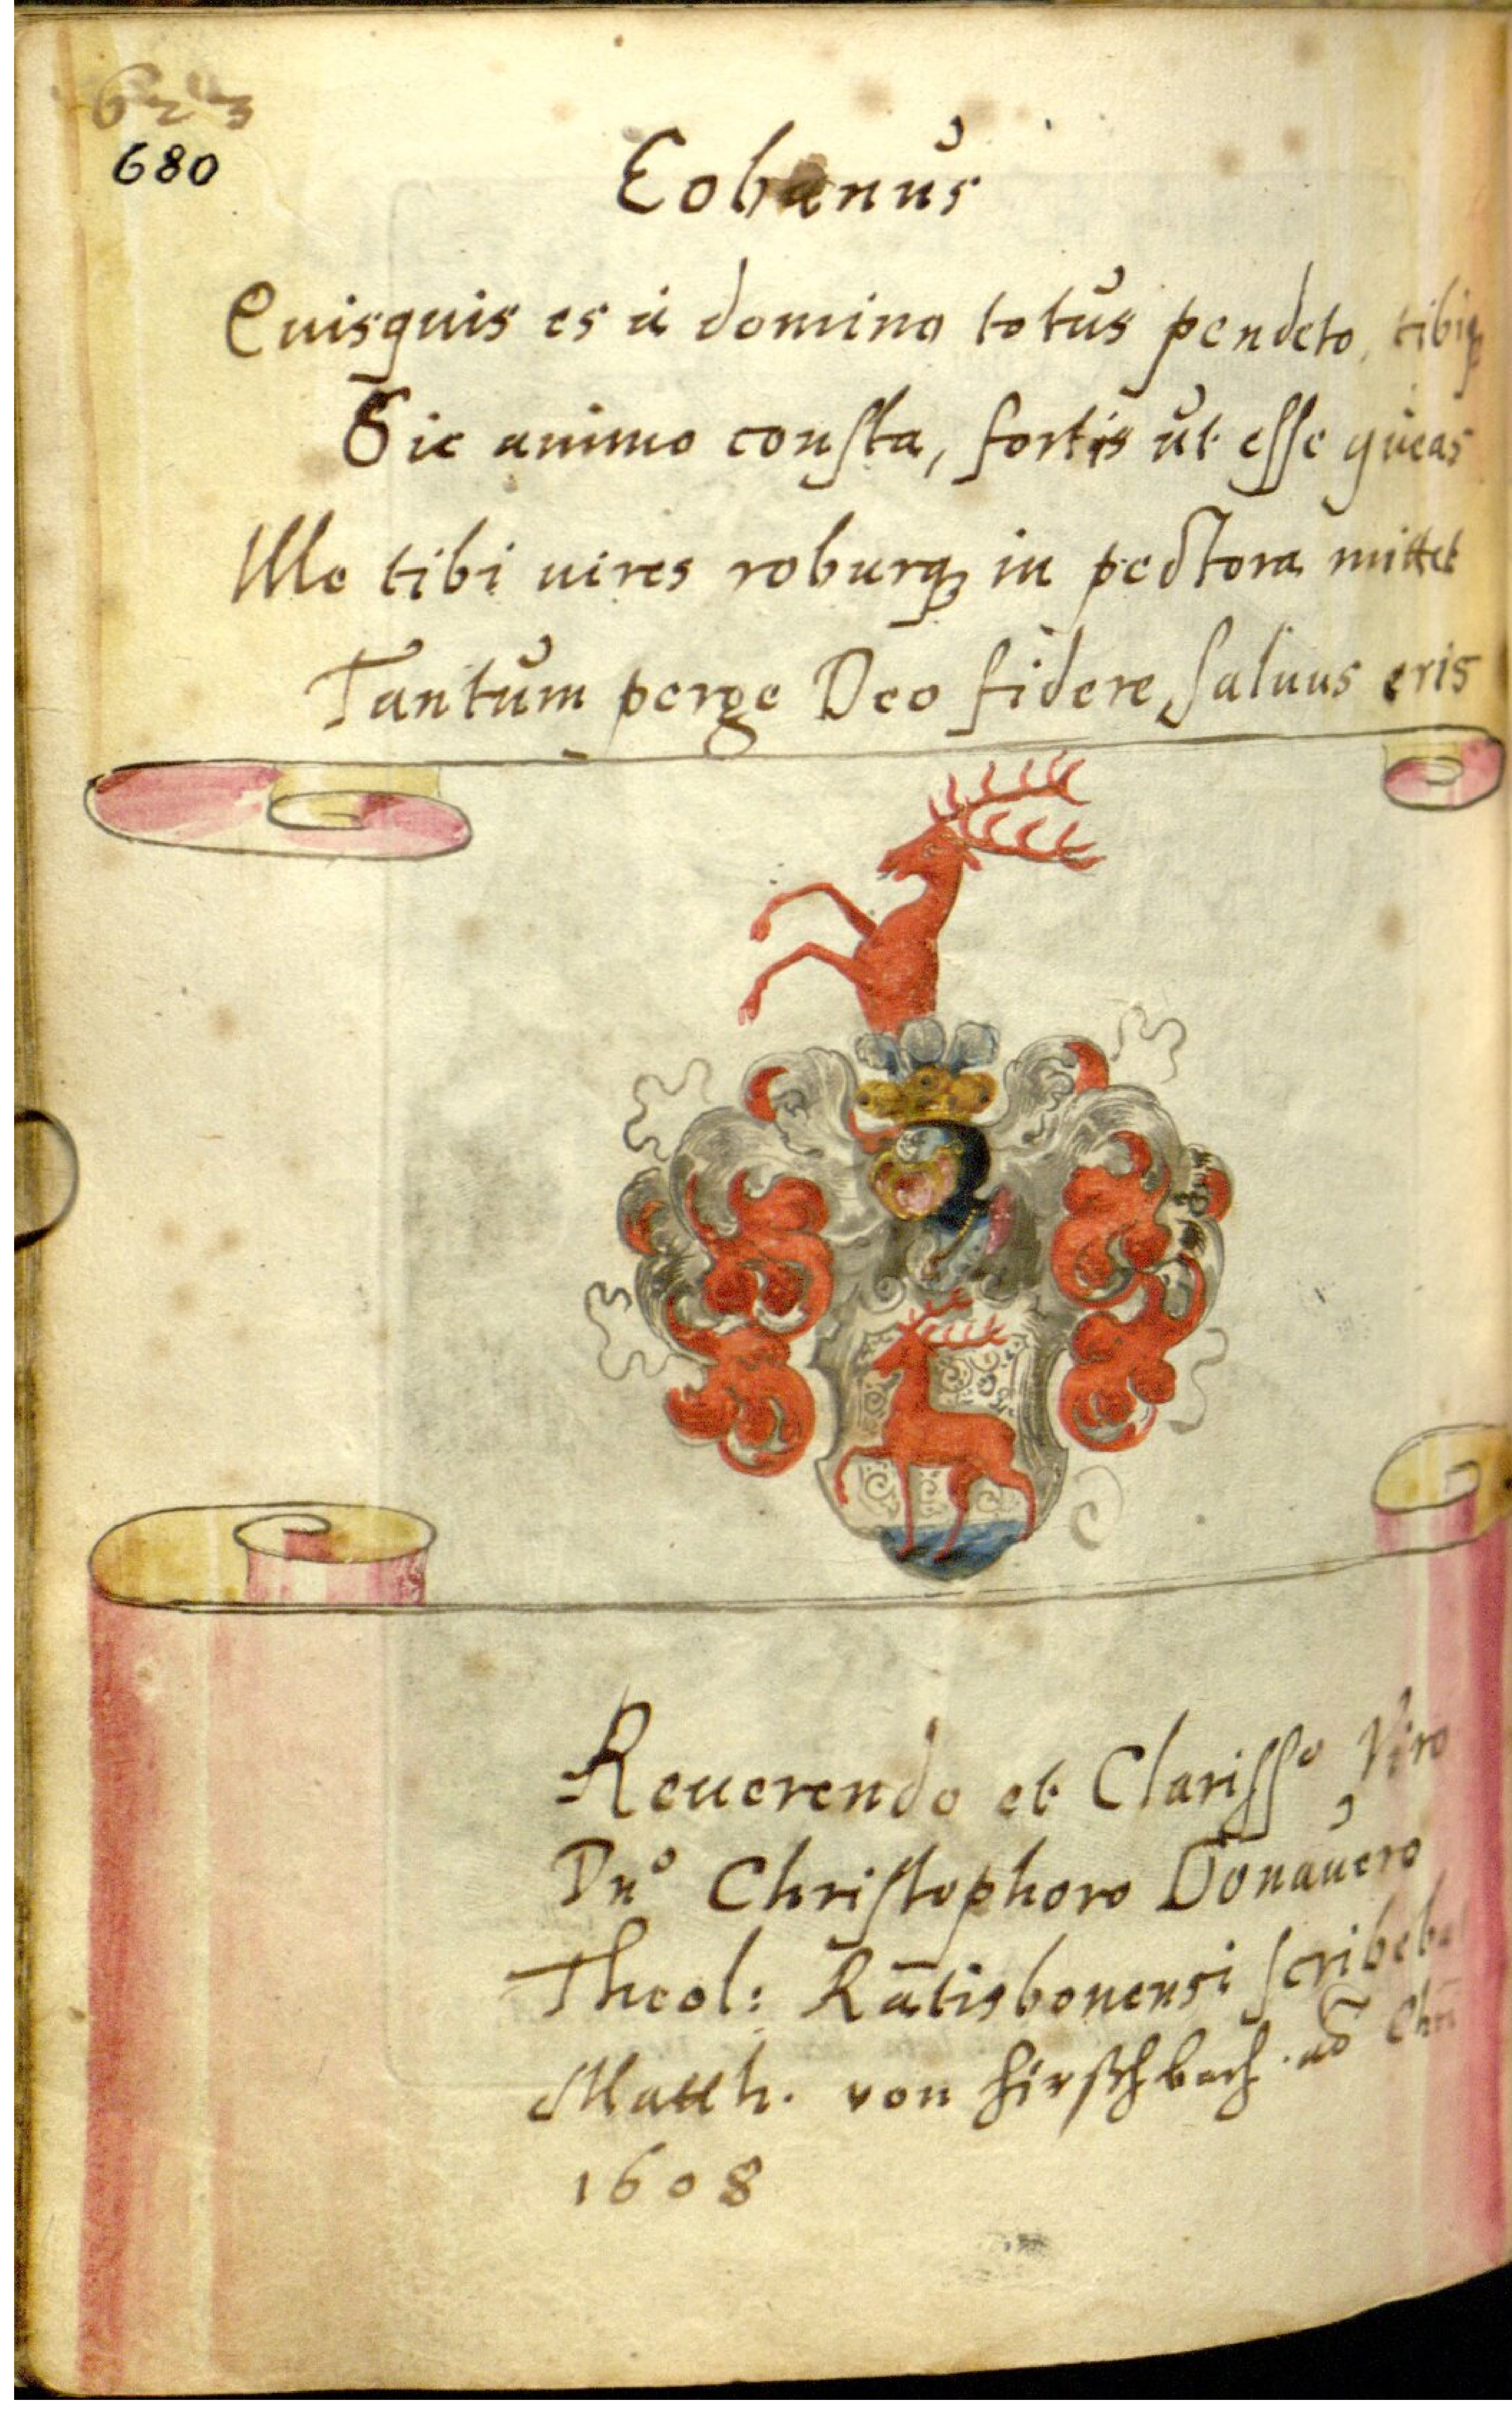 623
680
Eobanus
Quisquis es à domino totus pendeto, tibiq́;
Sic animo consta, fortis ut esse queas
Ille tibi uires roburq́; in pectora mittet
Tantum perge Deo fidere, saluus eris
Reuerendo et Clariss° Viro
Dn° Christophoro Donauero
Theol: Ratisbonensi scribeba
Matth. von Hirschbach. aõ Chri
1608